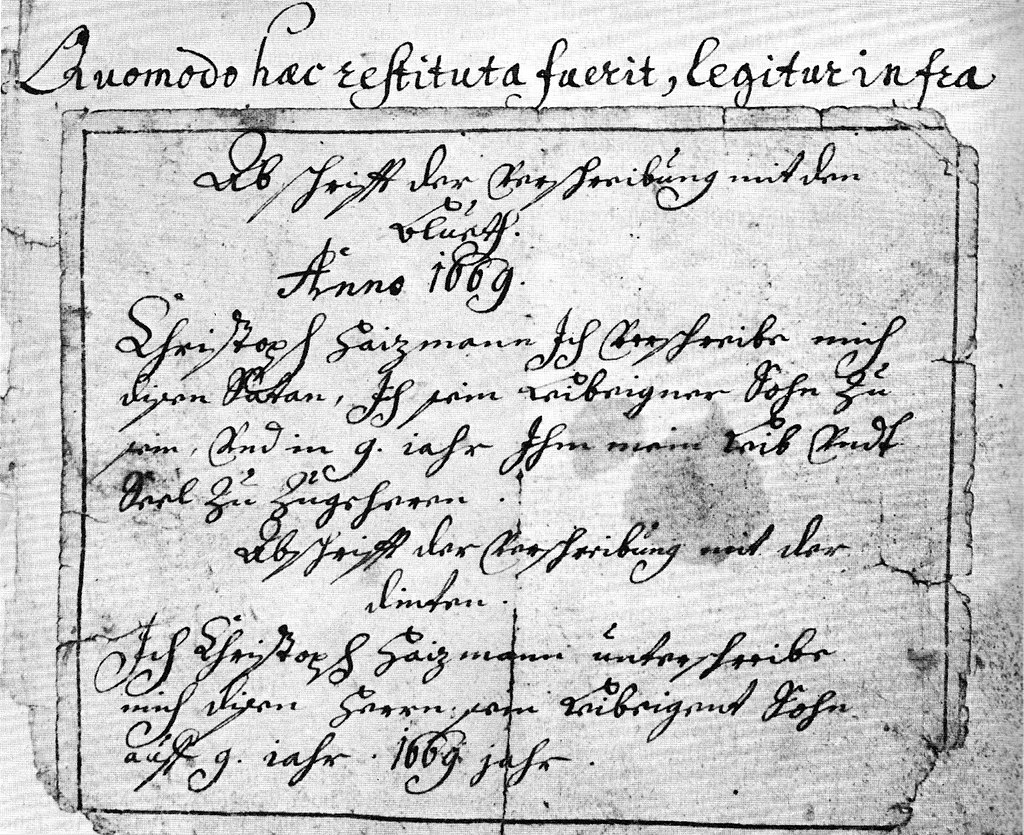 Quomodo hæc restituta fuerit, legitur infra
Abschrifft der Verschreibung mit den
bluett.
Anno 1669.
Christoph Haizmann Ich Verschreibe mich
disen Satan, Ich sein Leibeigner Sohn Zu
sein, Vnd in 9. iahr Ihm mein Leib Vndt
Seel Zu Zugeheren.
Abschrifft der Verschreibung mit der
dinten.
Ich Christoph Haizmann unterschreibe
mich disen Herrn sein Leibeigent Sohn
auff 9. iahr. 1669 jahr.